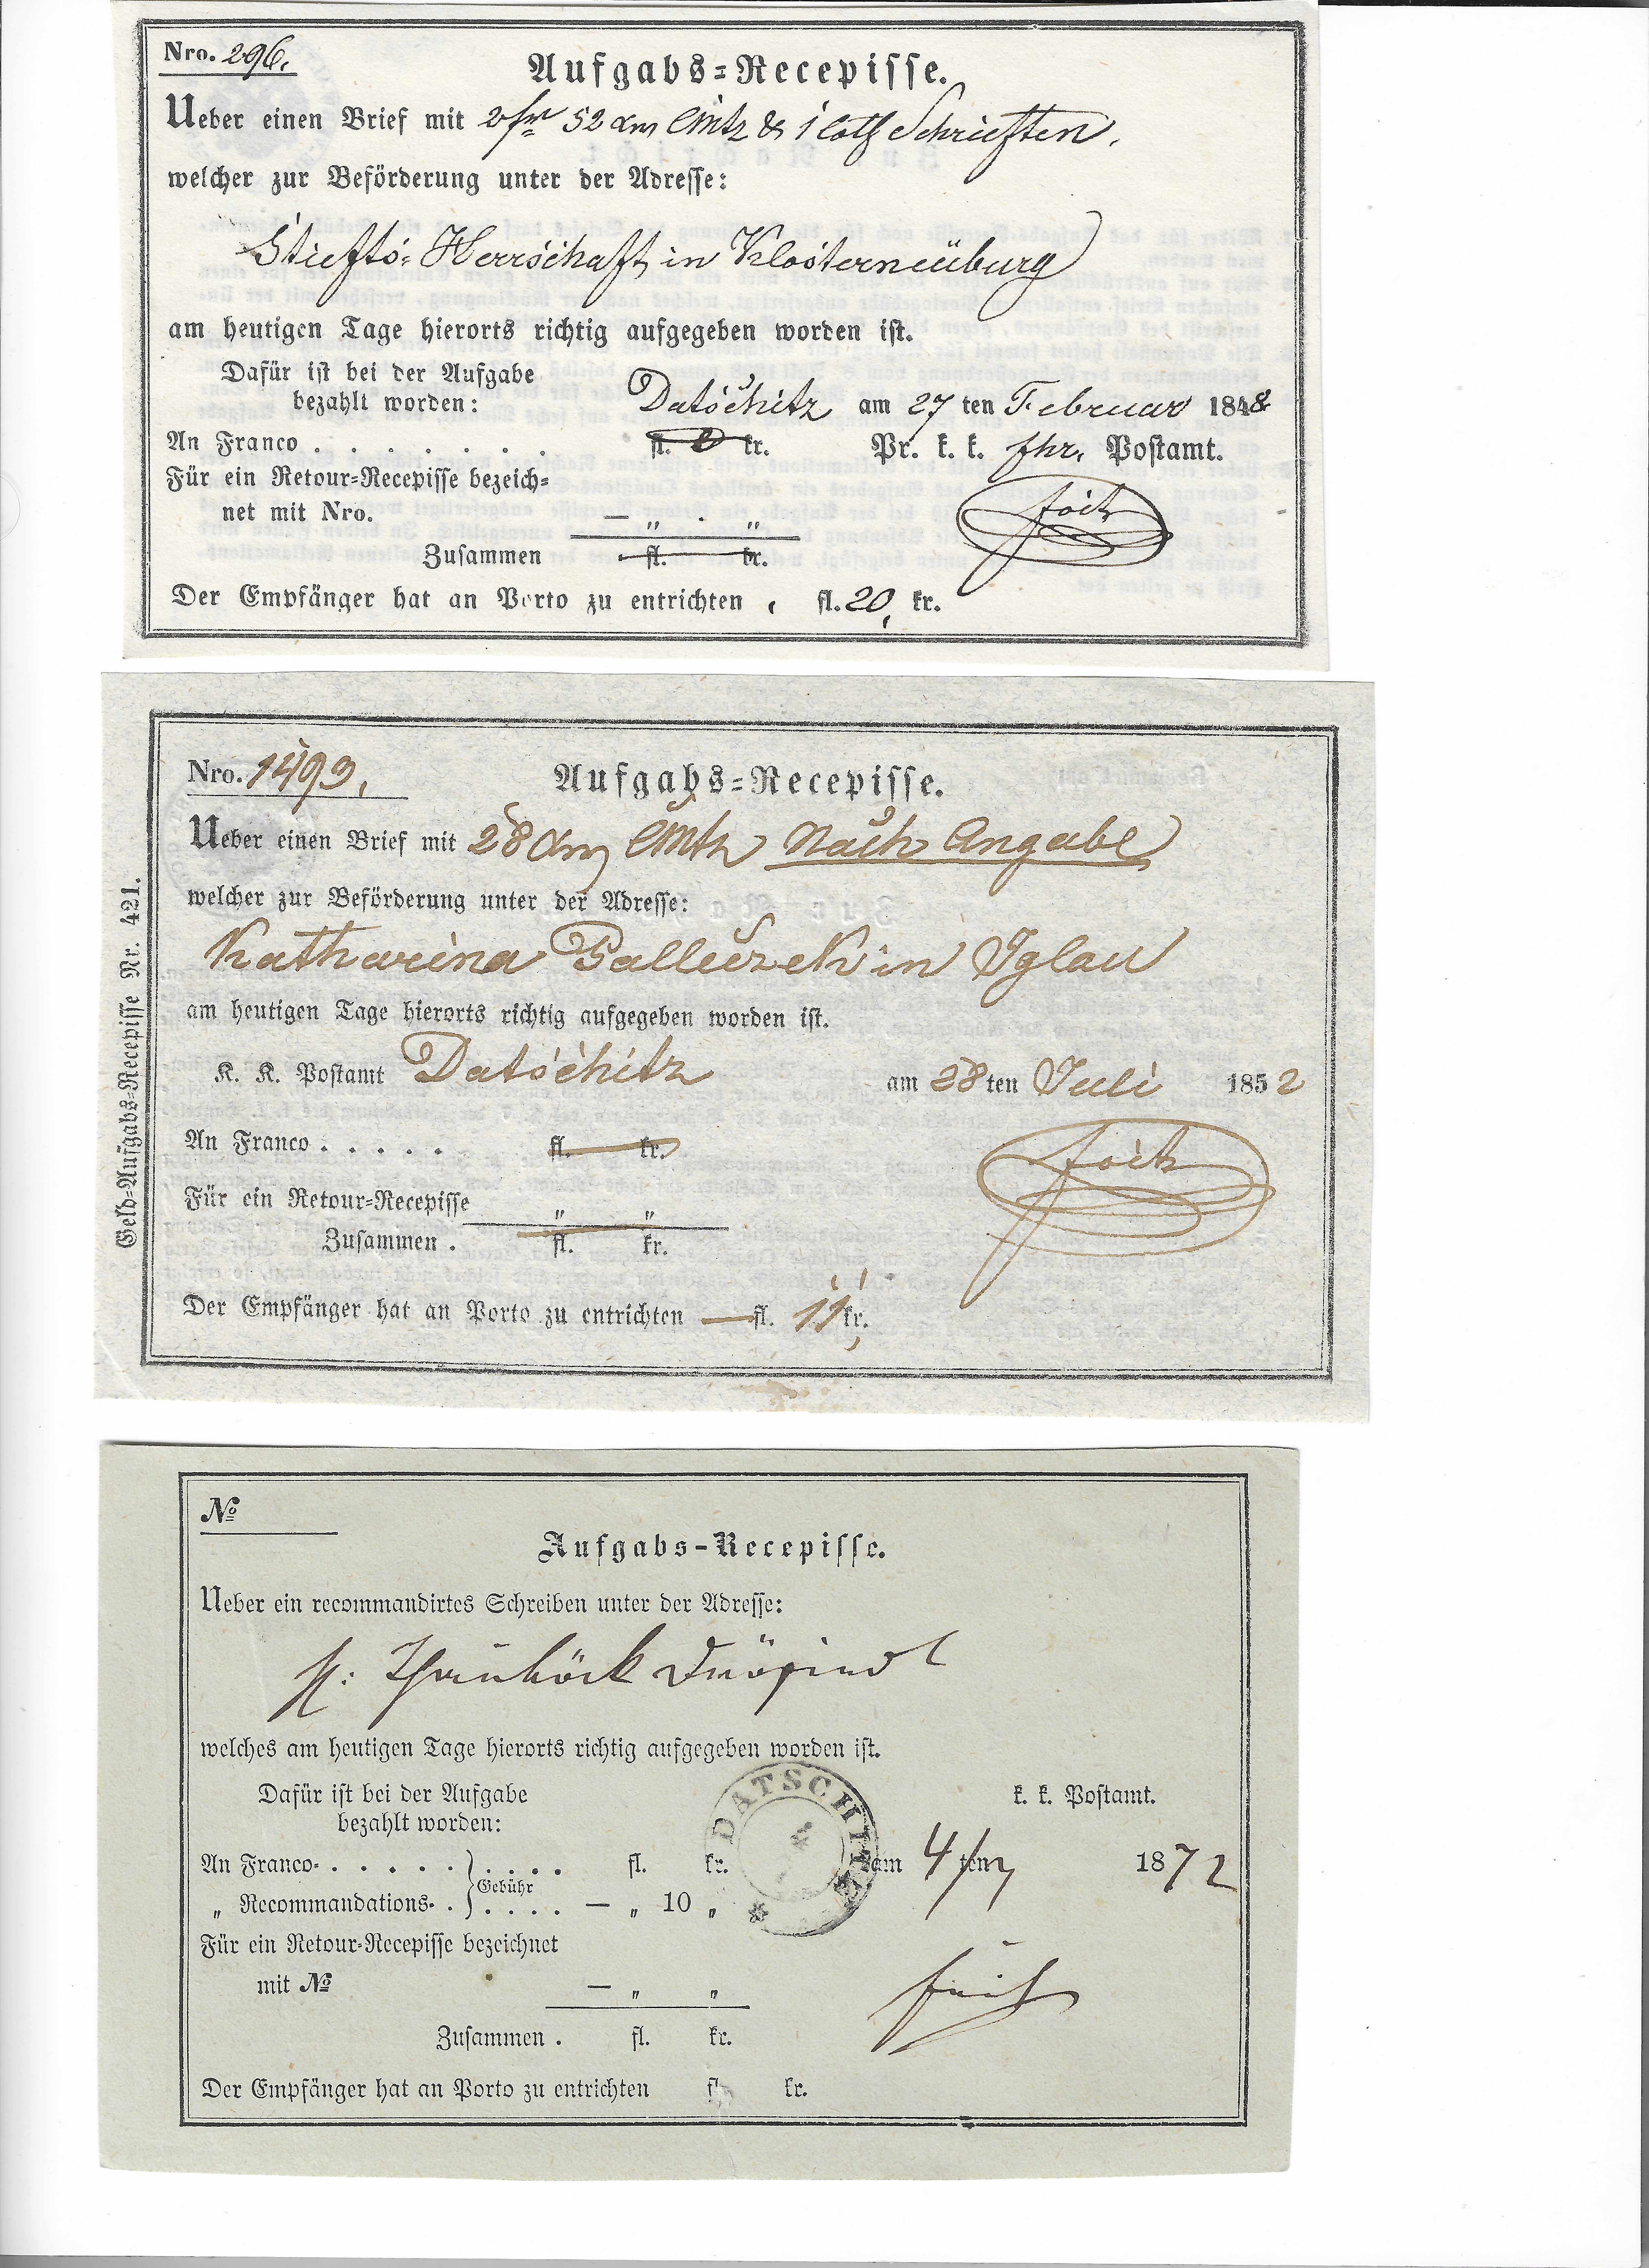 Nro. 296.
Aufgabs=Recepisse.
Ueber einen Brief mit 2 fr 52 xm Cmtz & 1 loth Schrieften.
welcher zur Beförderung unter der Adresse:
Stiefts-Herrschaft in Klosterneuburg
am heutigen Tage hierorts richtig aufgegeben worden ist.
Dafür ist bei der Aufgabe
bezahlt worden:
Datschitz am 27 ten Februar 1848
An Franco . . . . . . . fl. kr. Pr. k. k. fhr. Postamt.
Für ein Retour=Recepisse bezeich=
net mit Nro. — " . "
Zusammen fl. kr.
Der Empfänger hat an Porto zu entrichten , fl. 20, kr.
Nro. 1493.
Aufgabs=Recepisse.
Ueber einen Brief mit 28 xm Cmtz Nach Angabe
welcher zur Beförderung unter der Adresse:
Katharina in Iglau
am heutigen Tage hierorts richtig aufgegeben worden ist.
K. K. Postamt Datschitz am 28 ten Juli 1852
An Franco . . . . . fl. kr.
Für ein Retour=Recepisse " "
Zusammen . fl. kr.
Der Empfänger hat an Porto zu entrichten — fl. 11 kr.
Geld=Aufgabs=Recepisse Nr. 421.
№
Aufgabs-Recepisse.
Ueber ein recommandirtes Schreiben unter der Adresse:
welches am heutigen Tage hierorts richtig aufgegeben worden ist.
Dafür ist bei der Aufgabe
bezahlt worden:
k. k. Postamt.
DATSCHITZ
An Franco- . . . . . } . . . . fl. kr. am 4/7 ten 1872
Gebühr
„ Recommandations- . } . . . . — „ 10 „
Für ein Retour-Recepisse bezeichnet
mit № — " "
Zusammen . fl. kr.
Der Empfänger hat an Porto zu entrichten fl. kr.